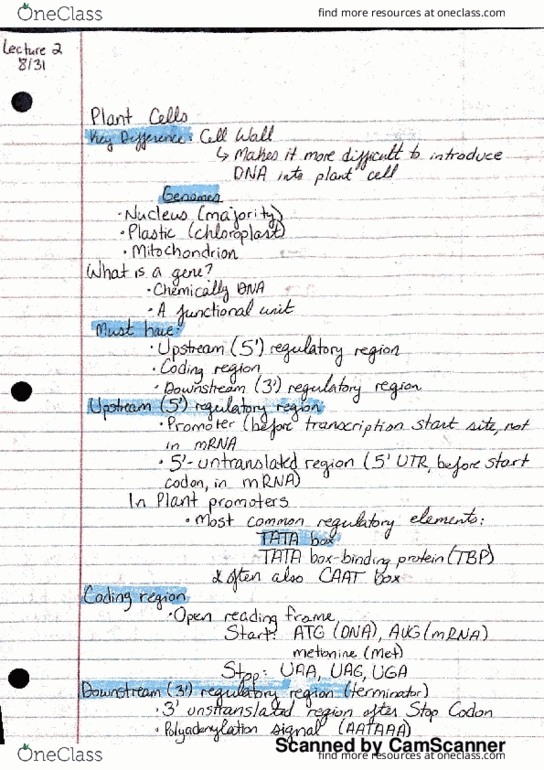 OneClass
find more resources at oneclass.com
Lecture 2
8/31
Plant Cells
Key Difference: Cell Wall
↳ Makes it more difficult to introduce
DNA into plant cell
Genomes
· Nucleus (majority)
· Plastic (chloroplast)
· Mitochondrion
What is a gene?
· Chemically DNA
· A functional unit
Must have:
· Upstream (5') regulatory region
· Coding region
· Downstream (3') regulatory region
Upstream (5') regulatory region
· Promoter (before transcription start site, not
in mRNA
· 5'-untranslated region (5' UTR, before start
codon, in mRNA)
In Plant promoters
· Most common regulatory elements:
TATA box
TATA box-binding protein (TBP)
* often also CAAT box
Coding region
· Open reading frame
Start: ATG (DNA), AUG (mRNA)
metionine (Met)
Stop: UAA, UAG, UGA
Downstream (3') regulatory region (terminator)
· 3' unstranslated region after Stop Codon
· Polyadenylation signal (AATAAA)
Scanned by CamScanner
OneClass
find more resources at oneclass.com